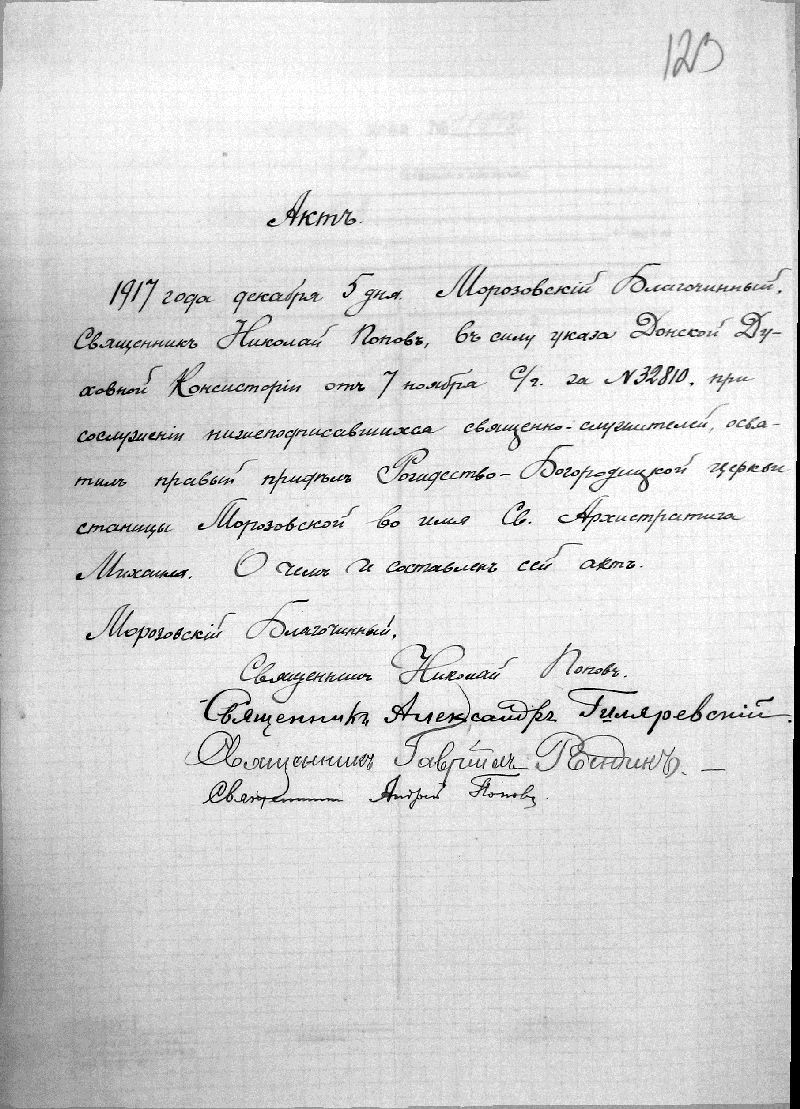 123
Актъ.
1917 года декабря 5 дня. Морозовскій Благочинный,
Священникъ Николай Поповъ, въ силу указа Донской Ду-
ховной Консисторіи отъ 7 ноября с/г. за №32810, при
сослуженіи нижеподписавшихся священно-служителей, освя-
тилъ правый придѣлъ Рождество-Богородицкой церкви
станицы Морозовской во имя Св. Архистратига
Михаила. О чемъ и составленъ сей актъ.
Морозовскій Благочинный,
Священникъ Николай Поповъ.
Священникъ Александръ Гиляревскій.
Священникъ Гавріилъ
Священникъ Андрей Поповъ